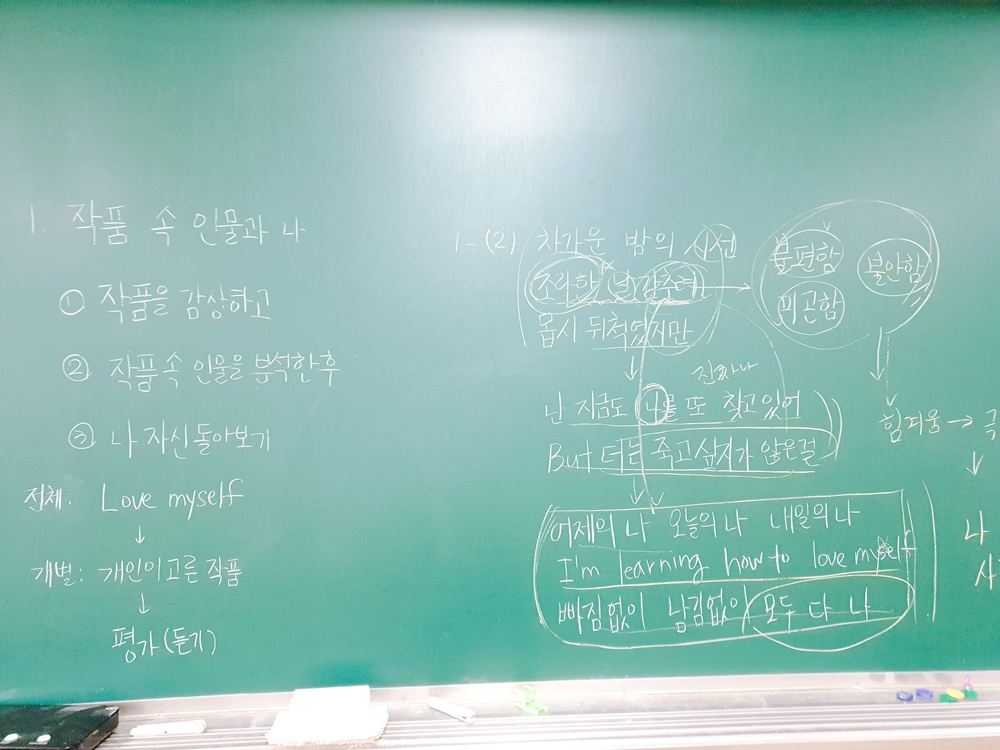 1. 작품 속 인물과 나
① 작품을 감상하고
② 작품속 인물을 분석한후
③ 나 자신 돌아보기
전체: Love myself
↓
개별: 개인이 고른 작품
↓
평가(듣기)
1-(2) 차가운 밤의 시선
초라한 날 감추려
몹시 뒤척였지만
↓
진짜 나
난 지금도 나를 또 찾고 있어
But 더는 죽고 싶지가 않은걸
↓
어제의 나 오늘의 나 내일의 나
I'm learning how to love myself
빠짐없이 남김없이 모두 다 나
→
불편함
불안함
피곤함
↓
힘겨움 →
↓
나